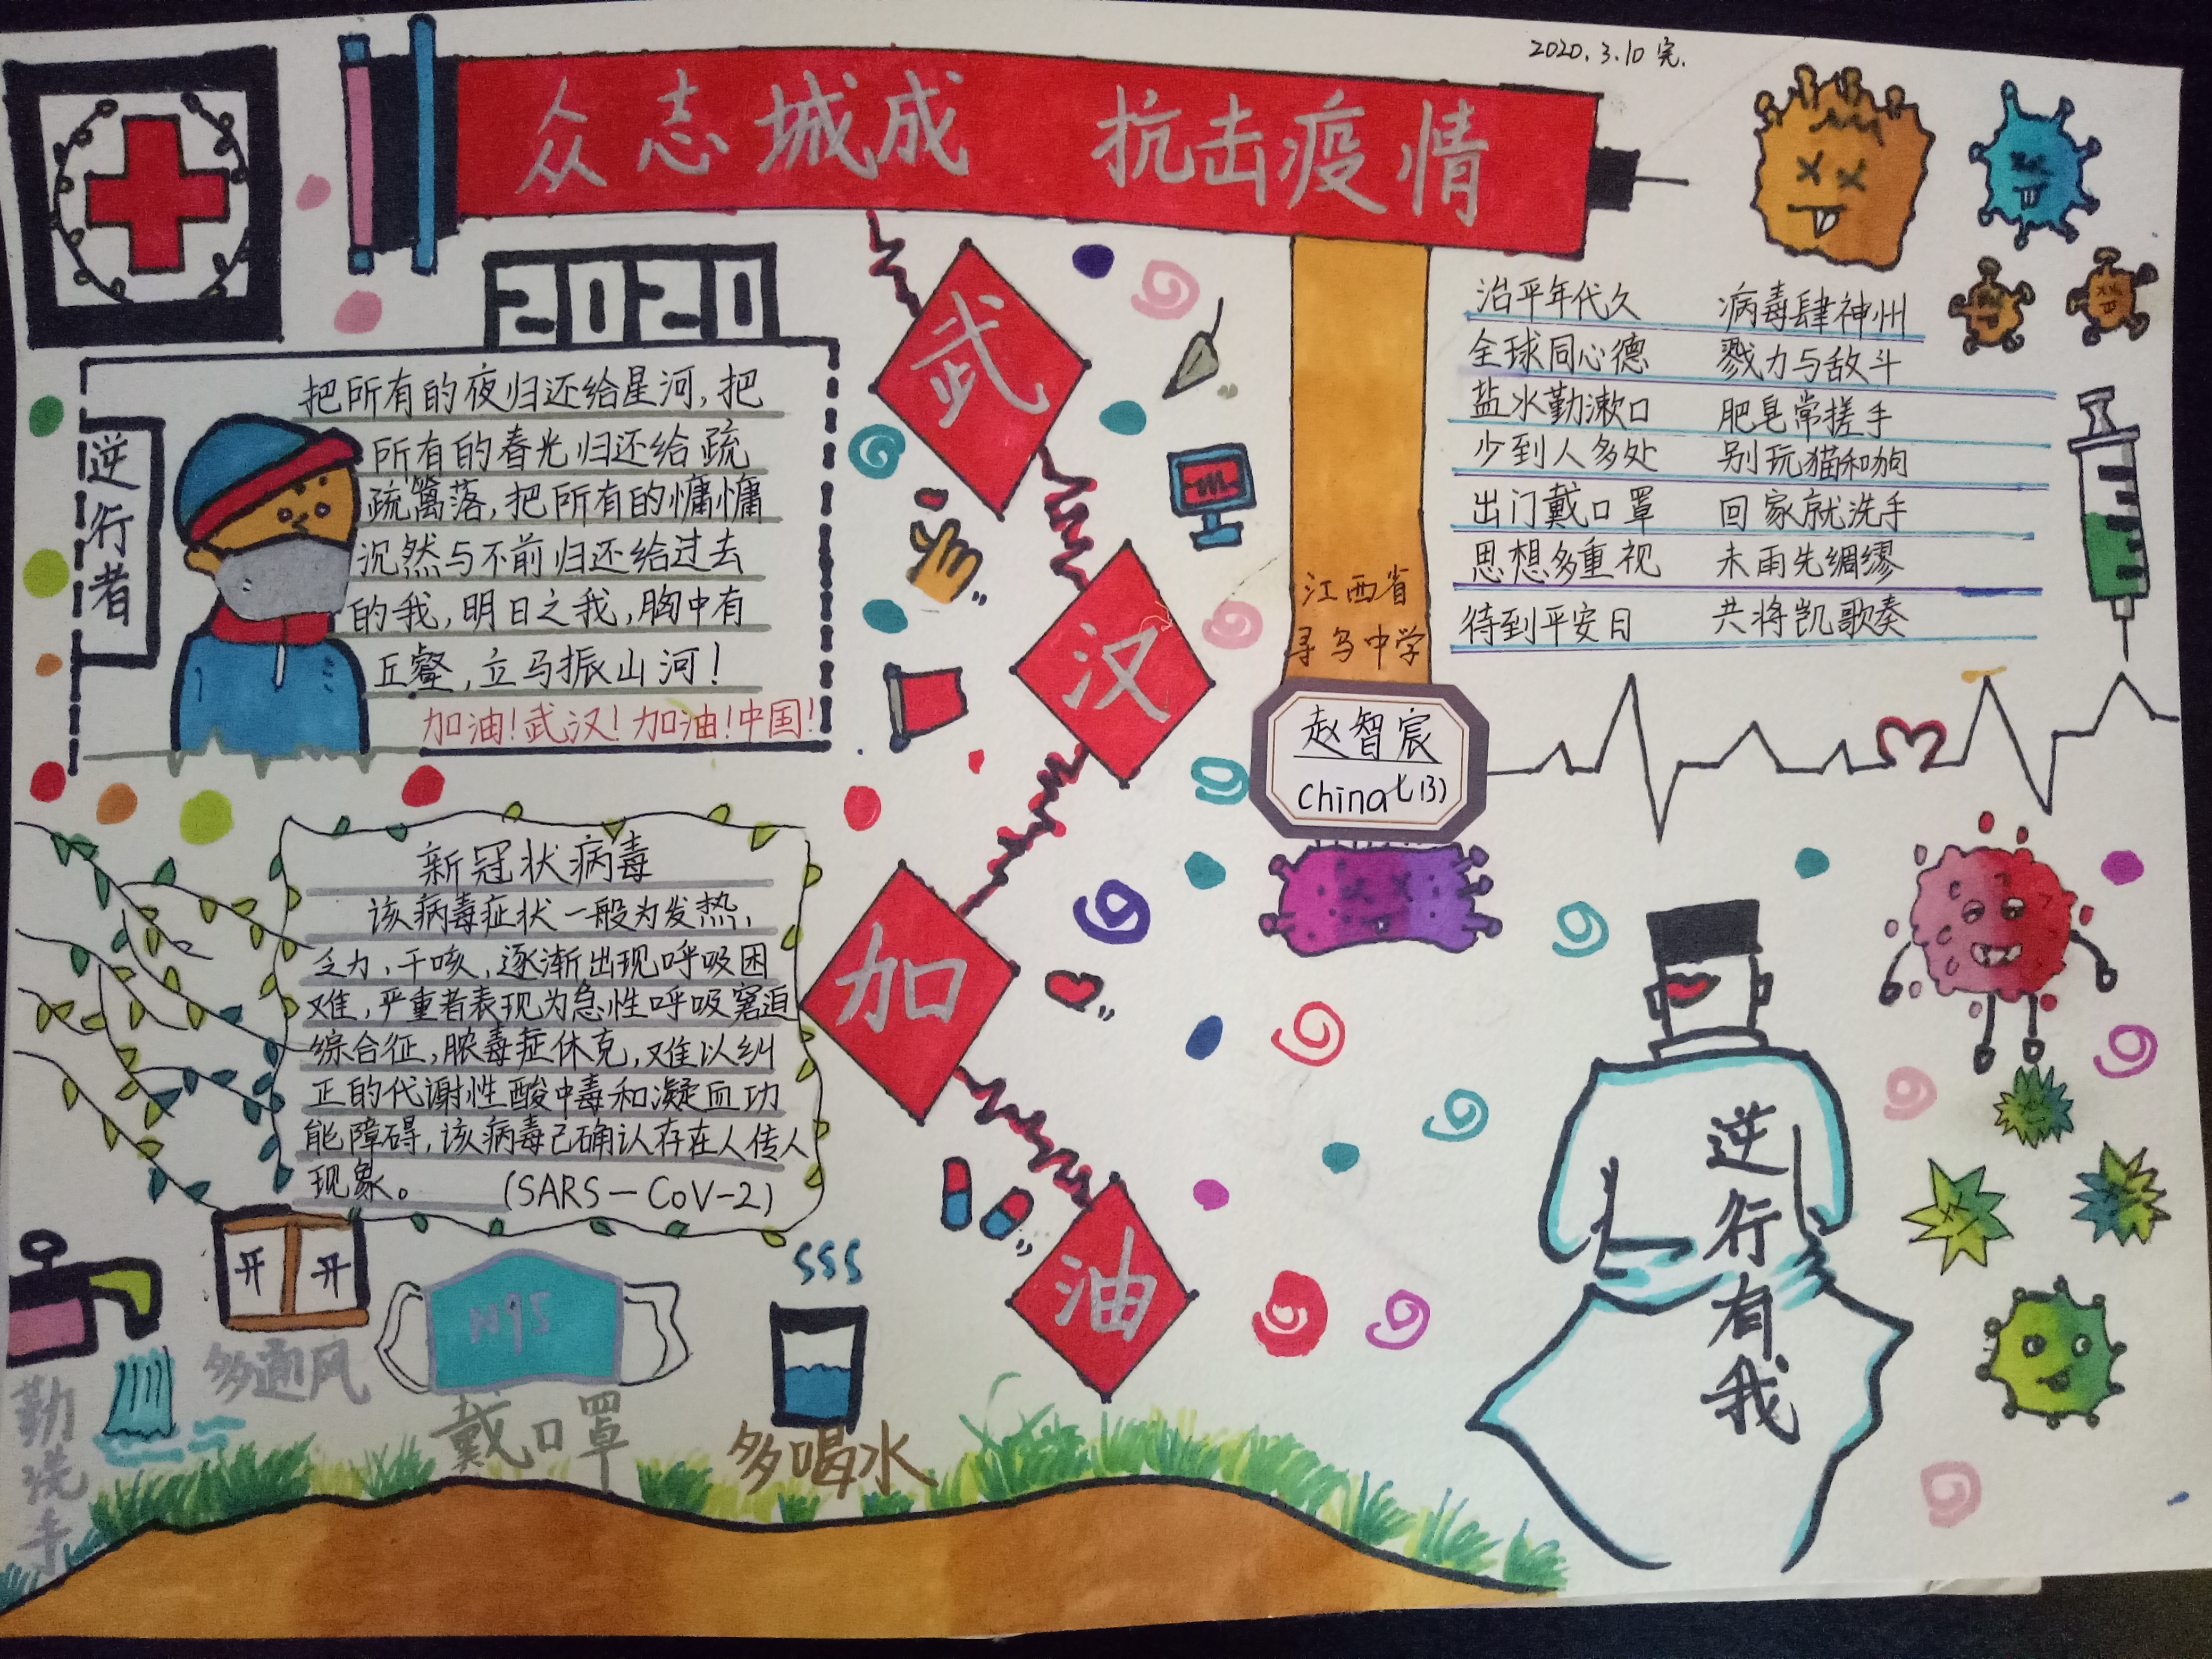 2020.3.10 完.
众志城成 抗击疫情
2020
逆行者
把所有的夜归还给星河,把
所有的春光归还给疏
疏篱落,把所有的慵慵
沉然与不前归还给过去
的我,明日之我,胸中有
丘壑,立马振山河!
加油!武汉!加油!中国!
武
汉
加
油
治平年代久 病毒肆神州
全球同心德 戮力与敌斗
盐水勤漱口 肥皂常搓手
少到人多处 别玩猫和狗
出门戴口罩 回家就洗手
思想多重视 未雨先绸缪
待到平安日 共将凯歌奏
江西省
寻乌中学
赵智宸
China 七(3)
新冠状病毒
该病毒症状一般为发热,
乏力,干咳,逐渐出现呼吸困
难,严重者表现为急性呼吸窘迫
综合征,脓毒症休克,难以纠
正的代谢性酸中毒和凝血功
能障碍,该病毒已确认存在人传人
现象。 (SARS-CoV-2)
逆行有我
开 开
多通风
N95
戴口罩
多喝水
勤洗手